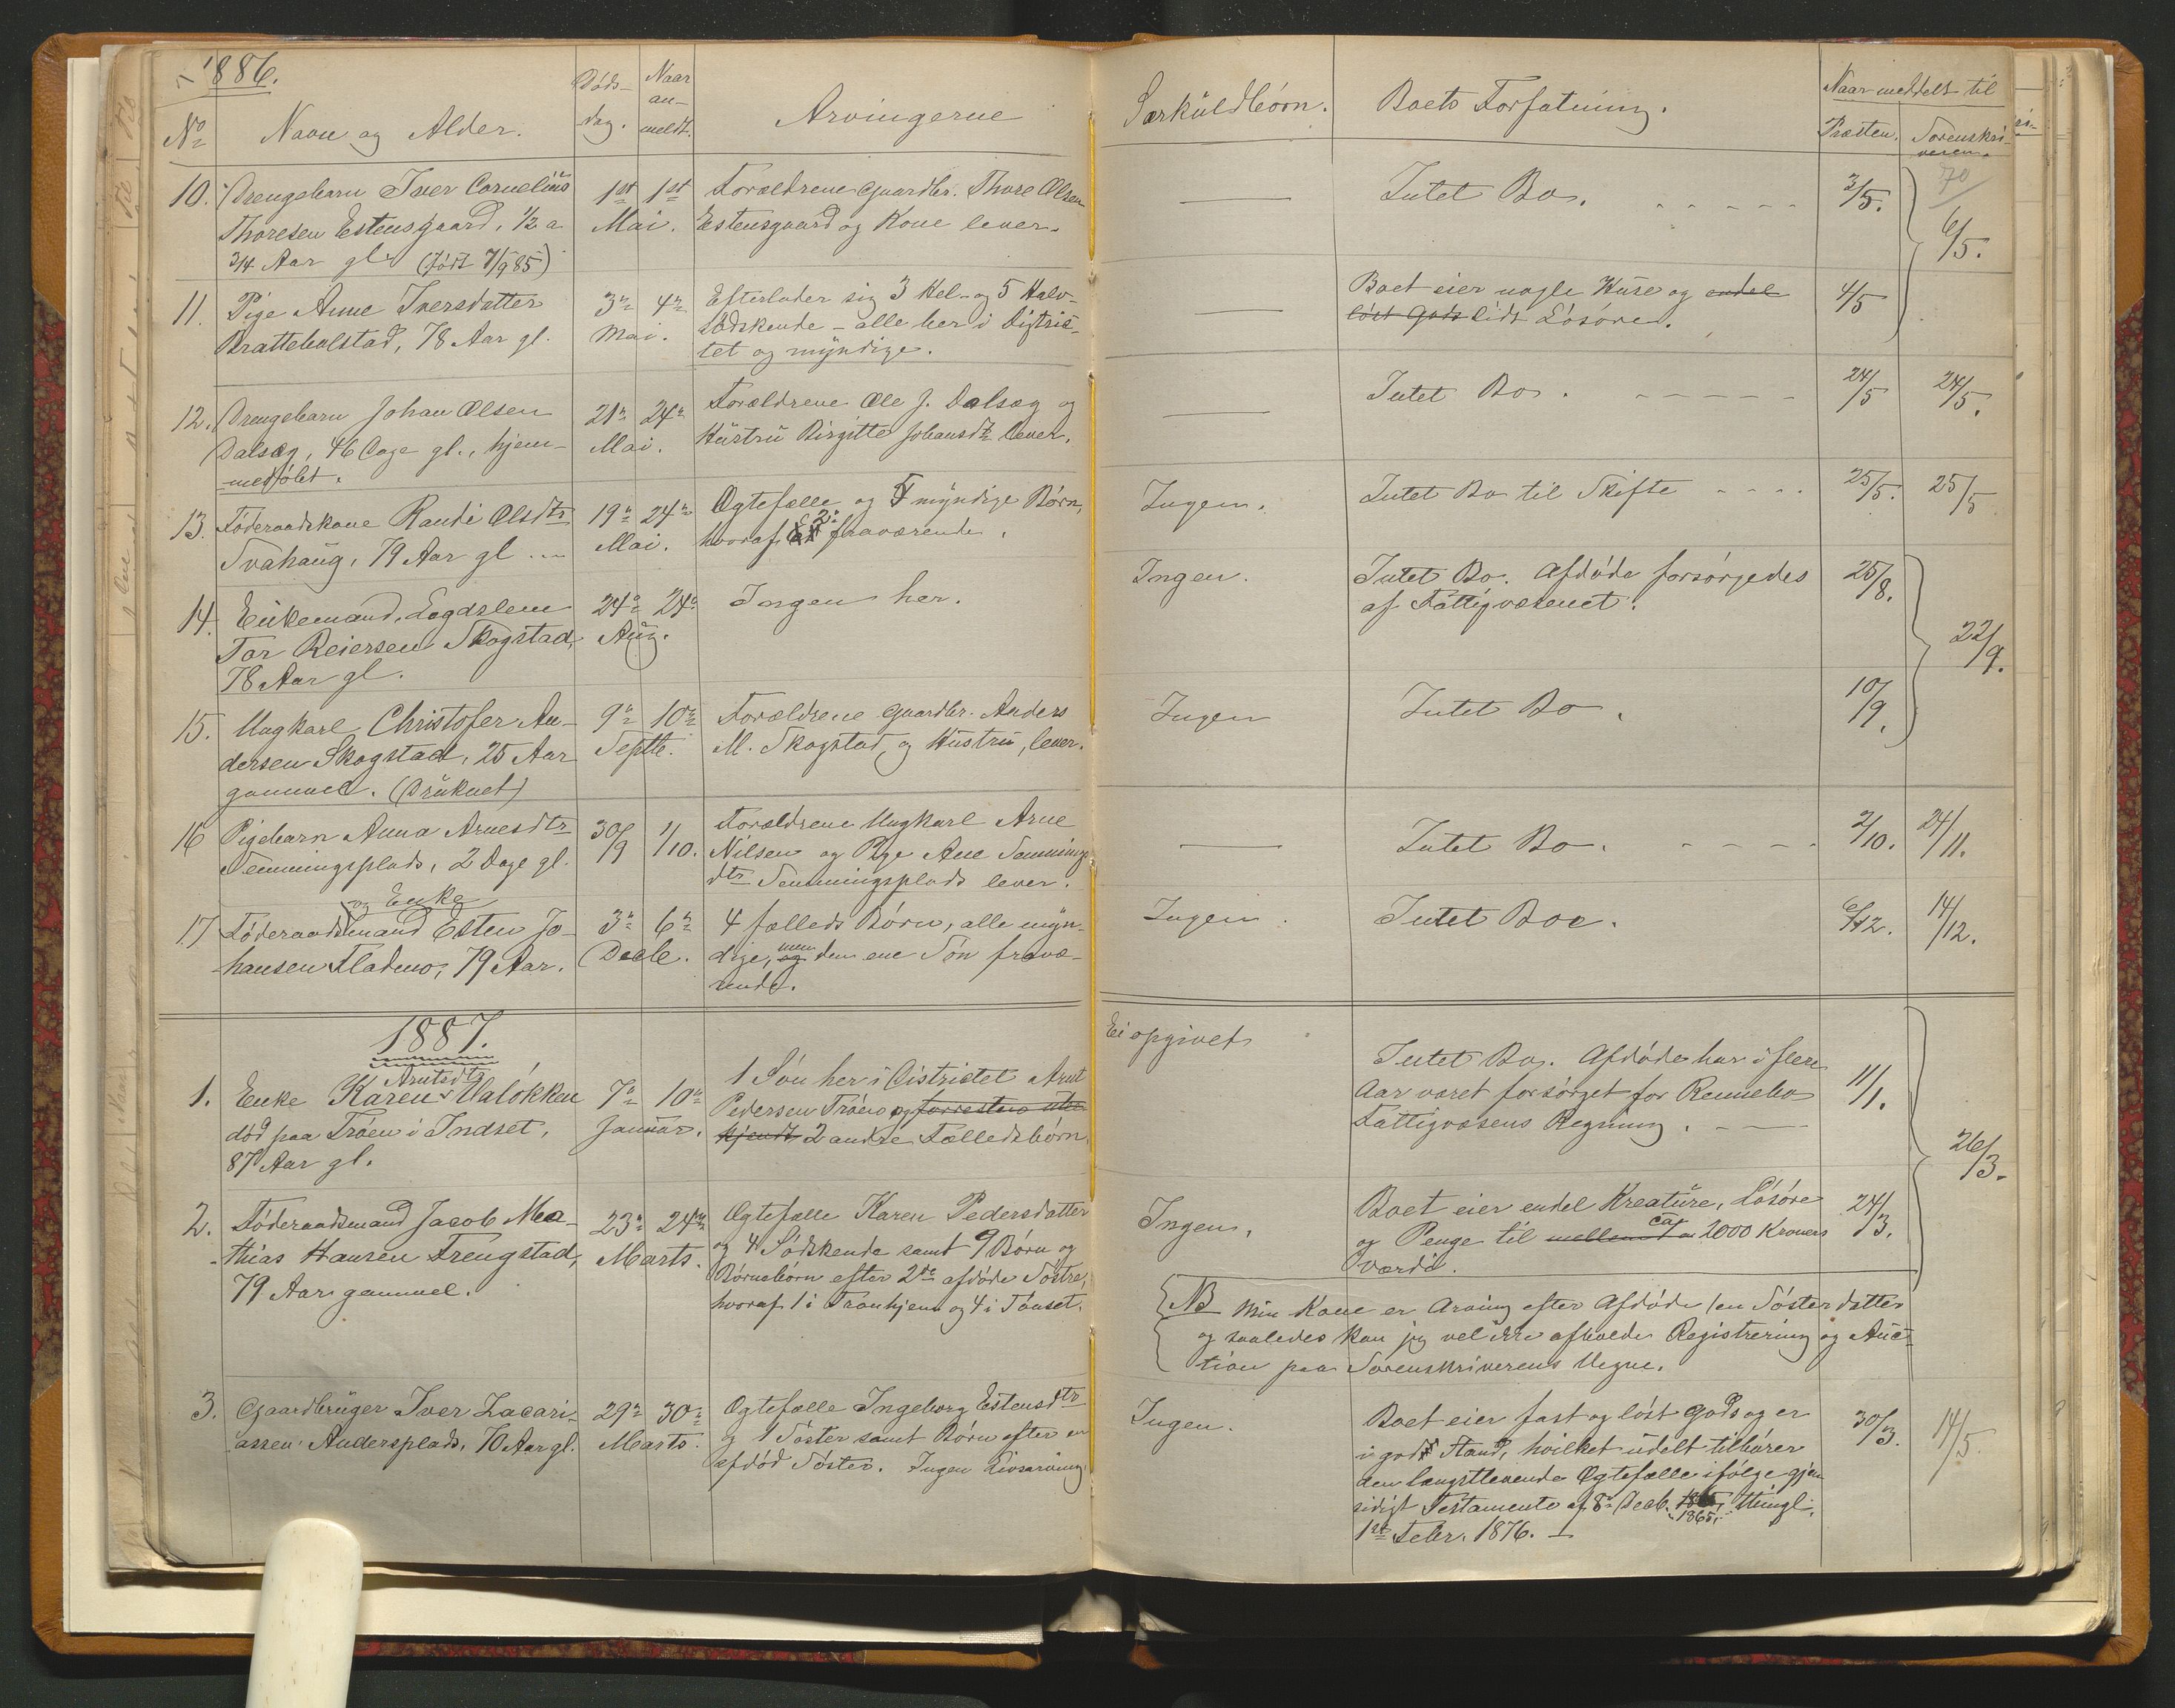 1886.
No Navn og Alder. Døds-dag. Naar an-meldt. Arvingerne
Særkuldbørn. Boets Forfatning. Naar meddelt til
Præsten. Sorenskri-
veren.
70
10. Drengebarn Iver Cornelius 1st 1st Forældrene Gaardbr. Thore Olsen
Thoresen Estensgaard, 1/2 a Mai. Estensgaard og Kone lever.
3/4 Aar gl. (født 7/9 85)
Intet Bo. 3/5. 6/5.
11. Pige Anne Iversdatter 3n 4n Efterlader sig 3 Hel- og 5 Halv-
Brattebolstad, 78 Aar gl. Mai. Sødskende - alle her i Distric-
tet og myndige.
Boet eier nogle Huse og endel 4/5
løst Gods lidt Løsøre.
12. Drengebarn Johan Olsen 21n 24n Forældrene Ole J. Dalsæg og
Dalsæg, 46 Dage gl., hjem- Mai. Hustru Birgitte Johansdtr lever.
medøbt.
Intet Bo. 24/5 24/5.
13. Føderaadskone Randi Olsdtr 19n 24n Ægtefælle og 5 myndige Børn,
Svahaug, 79 Aar gl. Mai. hvoraf 2n fraværende.
Ingen. Intet Bo til Skifte 25/5. 25/5
14. Enkemand, Lægdslem 24n 24n Ingen her.
Tor Reiersen Skogstad, Aug.
78 Aar gl.
Ingen. Intet Bo. Afdøde forsørgedes 25/8.
af Fattigvæsenet. 22/9.
15. Ungkarl Christofer An- 9n 10n Forældrene Gaardbr. Anders
dersen Skogstad, 25 Aar Septbr. M. Skogstad, og Hustru, lever.
gammel. (Druknet)
Ingen Intet Bo. 10/9.
16 Pigebarn Anna Arnesdtr 30/9 1/10. Forældrene Ungkarl Arne
Semmingsplads, 2 Dage gl. Nilsen og Pige Ane Semmings
dtr Semmingsplads lever.
Intet Bo. 2/10. 24/11.
og Enke
17 Føderaadsmand Esten Jo- 3n 6n 4 fælleds Børn, alle myn-
hansen Fladmo, 79 Aar. Decbr. dige, og men den ene Søn fravæ-
rende.
Ingen. Intet Boe. 6/12. 14/12.
1887.
Arntsdtr
1. Enke Karen Ualøkken 7n 10n 1 Søn her i Districtet Arnt
død paa Trøen i Indset, Januar. Pedersen Trøen og forresten ube
87 Aar gl. kjendt 2 andre Fælledsbørn.
Ei opgivet
Intet Bo. Afdøde har i flere
Aar været forsørget for Rennebo 11/1.
Fattigvæsens Regning.
26/3.
2. Føderaadsmand Jacob Ma- 23n 24n Ægtefælle Karen Pedersdatter
thias Hansen Trengstad, Marts. og 4 Sødskende samt 9 Børn og
79 Aar gammel. Børnebørn efter 2de afdøde Søstre,
hvoraf 1 i Tronhjem og 4 i Tønset.
Ingen. Boet eier endel Kreature, Løsøre 24/3.
og Penge til ca 2000 Kroners
Værdi.
NB Min Kone er Arving efter Afdøde (en Søsterdatter
og saaledes kan jeg vel ikke afholde Registrering og Auc-
tion paa Sorenskriverens Vegne.
3. Gaardbruger Iver Zacari- 29n 30n Ægtefælle Ingeborg Estensdtr
assen Andersplads, 70 Aar gl. Marts. og 1 Søster samt Børn efter en
afdød Søster. Ingen Livsarving.
Ingen. Boet eier fast og løst Gods og er 30/3. 14/5.
i god Stand, hvilket udelt tilhører
den længstlevende Ægtefælle ifølge gjen
sidigt Testamente af 8n Decb. 1865, thingl.
1st Febr. 1876.